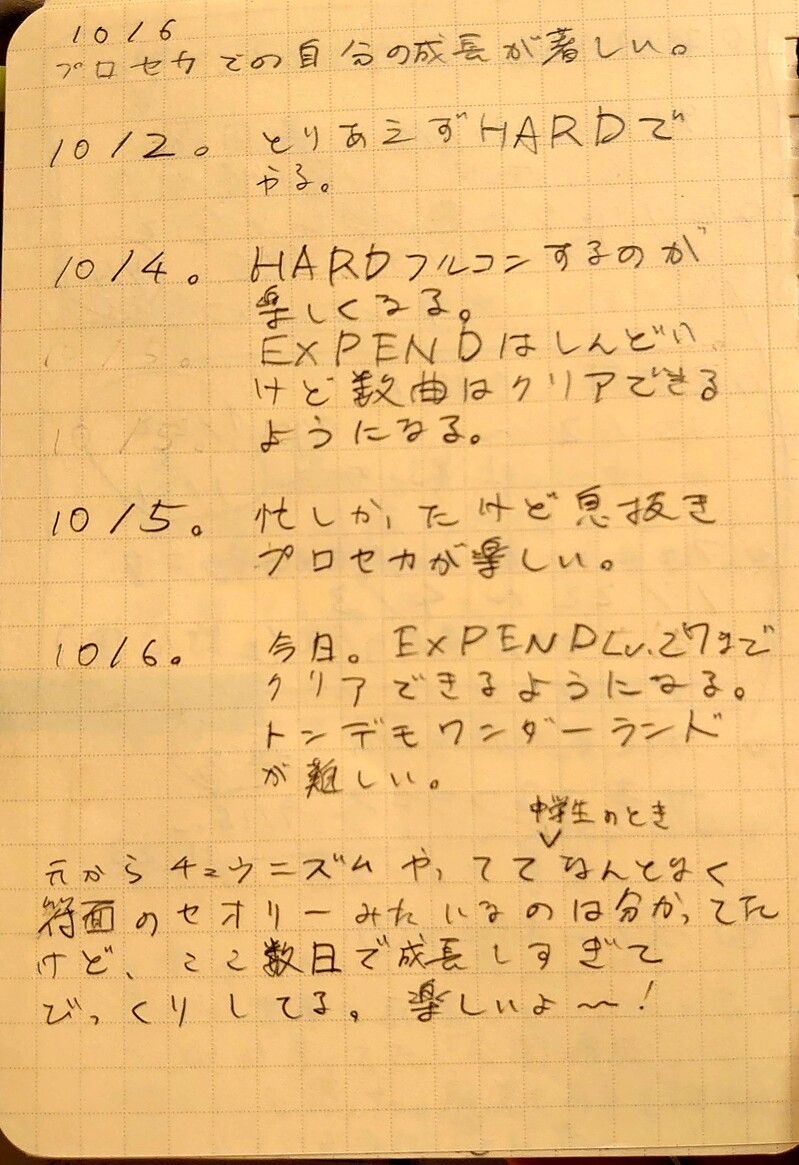 10/6
プロセカでの自分の成長が著しい。
10/2。 とりあえずHARDで
やる。
10/4。 HARDフルコンするのが
楽しくなる。
EXPENDはしんどい
けど数曲はクリアできる
ようになる。
10/5。 忙しかったけど息抜き
プロセカが楽しい。
10/6。 今日。EXPENDLv.27まで
クリアできるようになる。
トンデモワンダーランド
が難しい。
中学生のとき
元からチュウニズムやっててなんとなく
符面のセオリーみたいなのは分かってた
けど、ここ数日で成長しすぎて
びっくりしてる。楽しいよ〜!